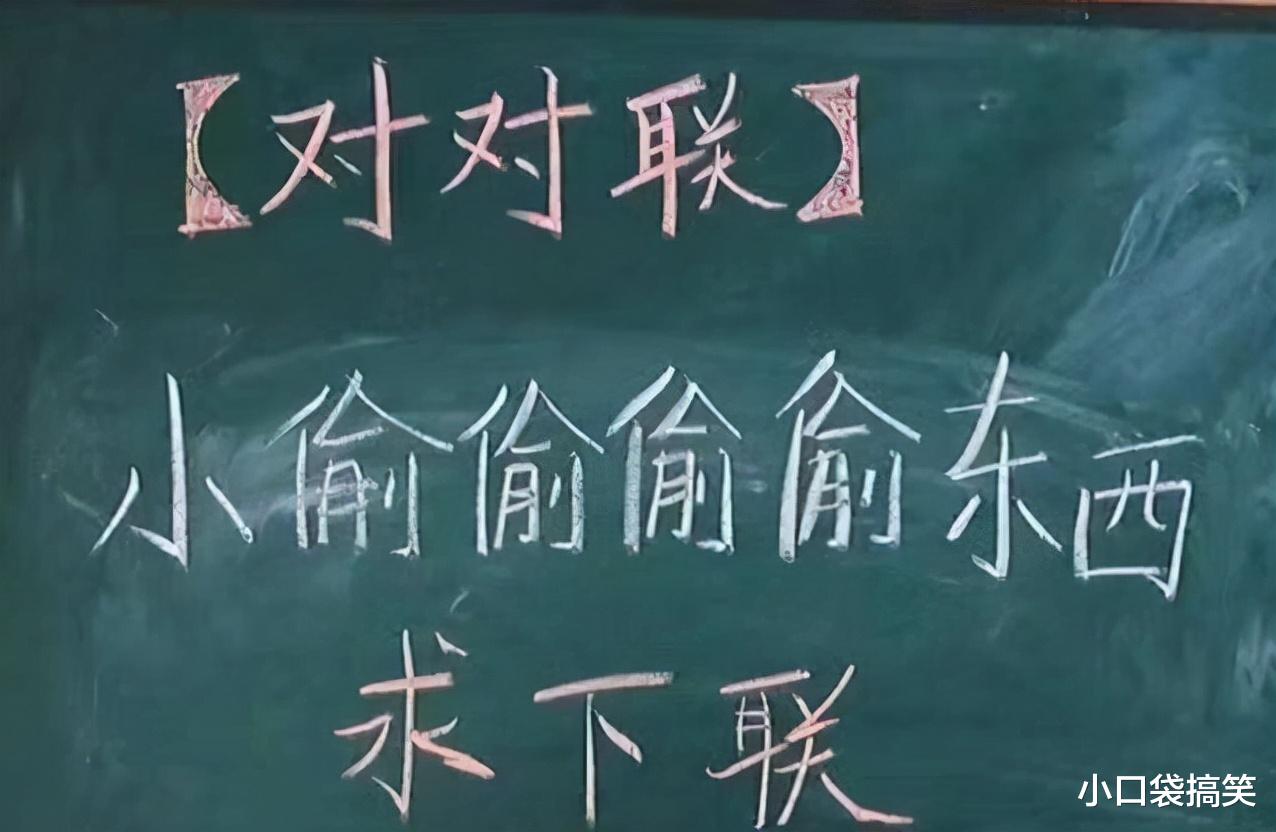 【对对联】
小偷偷偷偷东西
求下联
小口袋搞笑